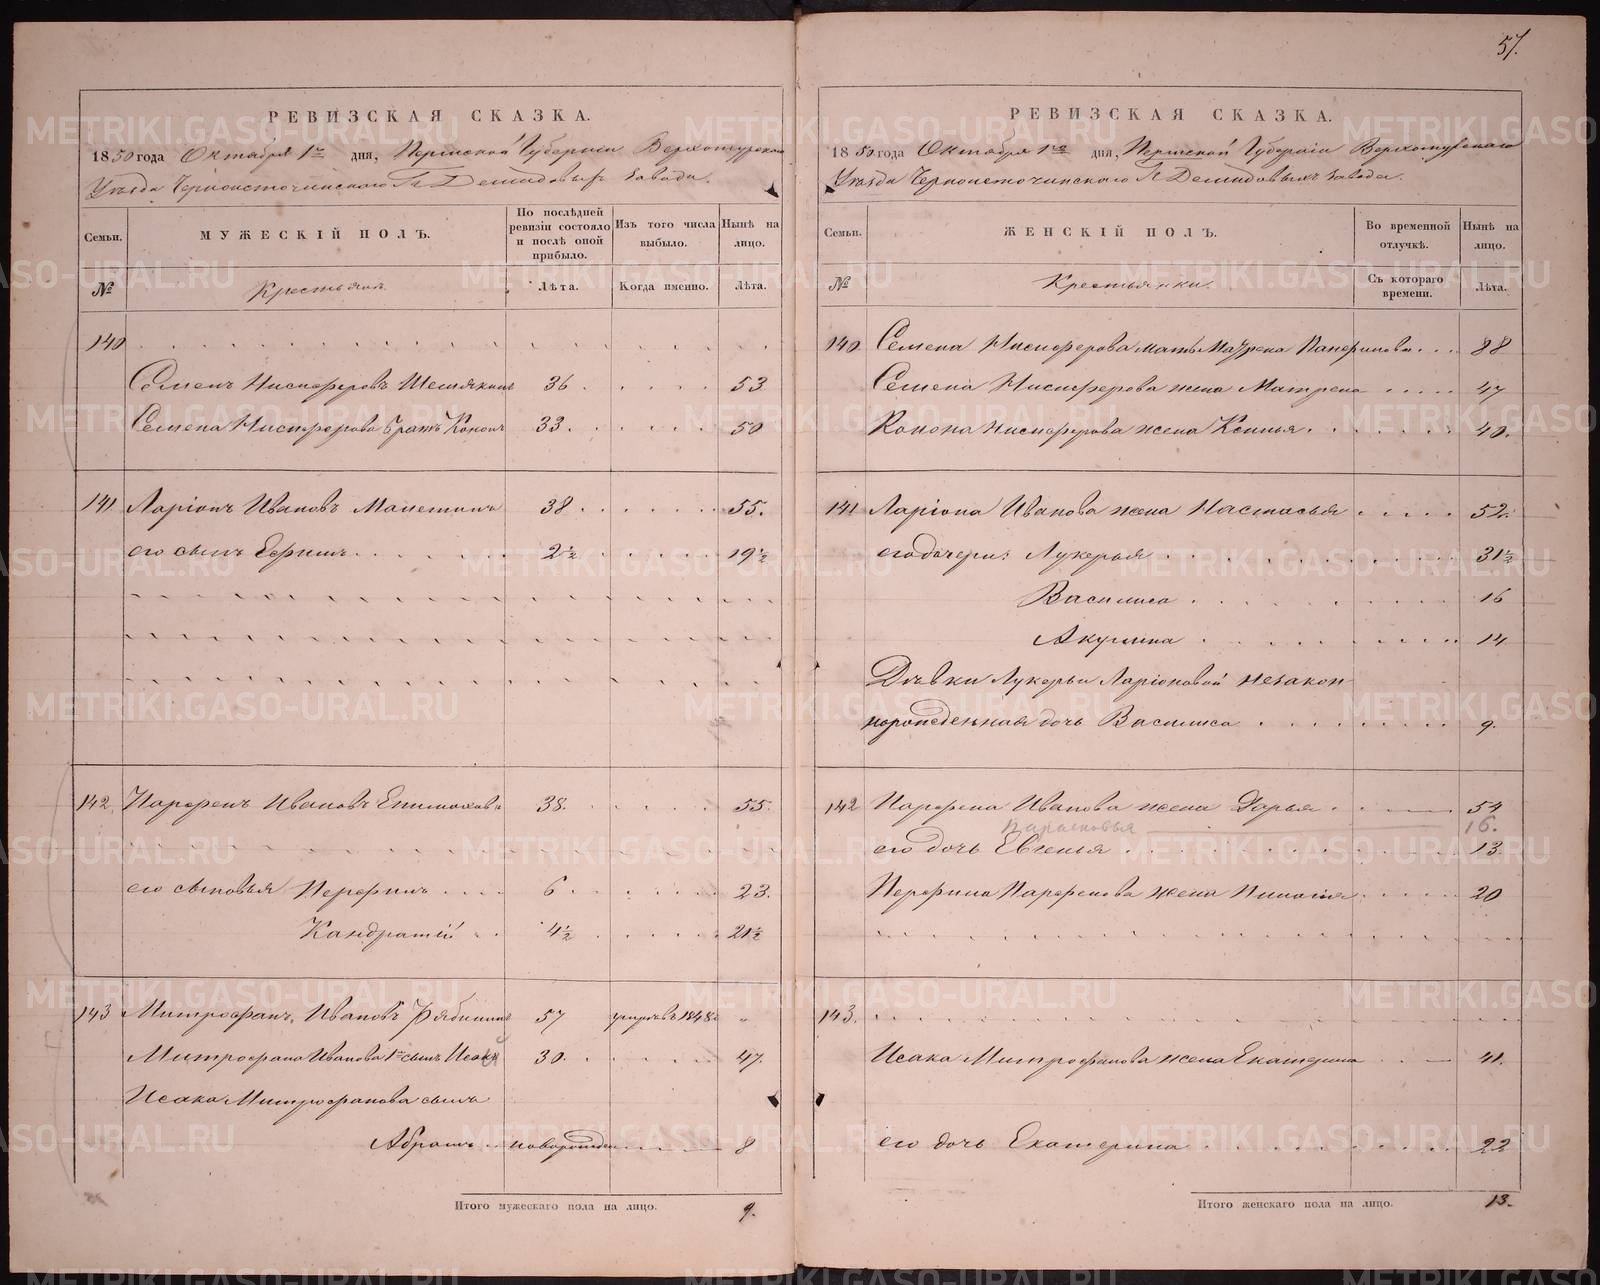 57.
РЕВИЗСКАЯ СКАЗКА.
1850 года Октября 1го дня, Пермской Губернии Верхотурскаго
Уѣзда Черноисточинскаго Гг Демидовыхъ завода.
Семьи.
МУЖЕСКІЙ ПОЛЪ.
По послѣдней ревизіи состояло и послѣ оной прибыло.
Изъ того числа выбыло.
Нынѣ на лицо.
№
Крестьянъ
Лѣта.
Когда именно.
Лѣта.
140
Семенъ Нисиферовъ 36 53
Семена Нисиферова братъ Кононъ 33. 50
141 Ларіонъ Ивановъ 38 55.
его сынъ Ефимъ 2½ 19½
142 Парфенъ Ивановъ 38. 55.
его сыновья Перфилъ 6 23.
Кандратій 4½ 21½
143 Митрофанъ Ивановъ Рябининъ 57 умеръ въ 1848 "
Митрофана Иванова 1й сынъ Исакъ 30. 47.
Исака Митрофанова сынъ
Абрамъ новорожден 8
Итого мужескаго пола на лицо. 9.
РЕВИЗСКАЯ СКАЗКА.
1850 года Октября 1го дня, Пермской Губерніи Верхотурскаго
Уѣзда Черноисточинскаго Гг Демидовыхъ завода.
Семьи.
ЖЕНСКІЙ ПОЛЪ.
Во временной отлучкѣ.
Нынѣ на лицо.
№
Крестьянки.
Съ котораго времени.
Лѣта.
140 Семена Нисиферова мать 88
Семена Нисиферова жена Матрена 47
Конона Нисиферова жена Ксинья 40.
141 Ларіона Иванова жена Настасья 52.
его дочери: Лукерья 31½
Василиса 16
Акулина 14
Дѣвки Лукерьи Ларіоновой незакон
норожденная дочь Василиса 9.
142 Парфена Иванова жена Дарья 54
Парасковья 16.
его дочь Евгенья 13
Перфила Парфенова жена 20
143.
Исака Митрофанова жена Екатерина 41.
его дочь Екатерина 22
Итого женскаго пола на лицо. 13.
METRIKI.GASO-URAL.RU